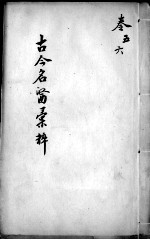 卷五六
古今名醫彙粹